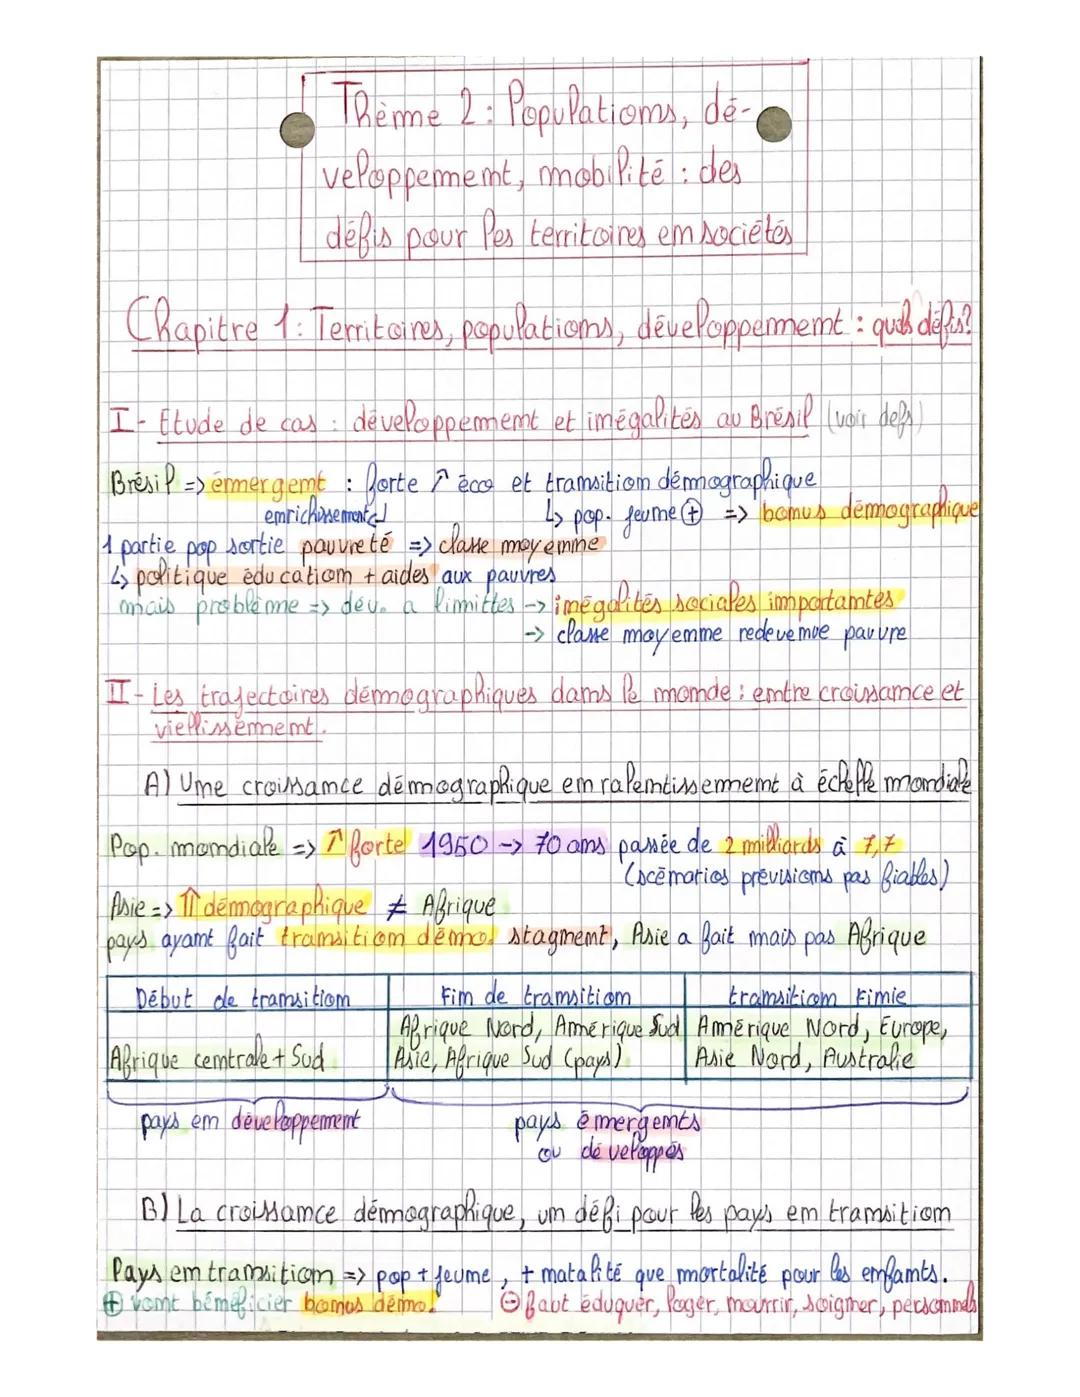 Thème 2 : Populations, dé-
veloppement, mobilité : des
défis pour les territoires en sociétés
Chapitre 1 : Territoires, populations, développement : quels défis?
I- Etude de cas : développement et inégalités au Brésil (voir defs)
Brésil => émergent : forte ↑ éco et transition démographique
enrichissement ↲ ↳ pop. jeune ⊕ => bonus démographique
1 partie pop sortie pauvreté => classe moyenne
↳ politique éducation + aides aux pauvres
mais problème => dév. a limittes -> inégalités sociales importantes
-> classe moyenne redevenue pauvre
II- Les trajectoires démographiques dans le monde : entre croissance et
viellissement.
A) Une croissance démographique en ralentissement à échelle mondiale
Pop. mondiale => ↑ forte 1950 -> 70 ans passée de 2 milliards à 7,7
(scénarios prévisions pas fiables)
Asie => ⇑ démographique ≠ Afrique
pays ayant fait transition démo. stagnent, Asie a fait mais pas Afrique
Début de transition Fim de transition transition Finie
Afrique Nord, Amérique Sud Amérique Nord, Europe,
Afrique centrale + Sud Asie, Afrique Sud (pays) Asie Nord, Australie
pays en développement pays émergents
ou développés
B) La croissance démographique, un défi pour les pays en transition
Pays en transition => pop + jeune, + natalité que mortalité pour les enfants.
⊕ vont bénéficier bonus démo. ⊖ faut éduquer, loger, nourrir, soigner, personnels